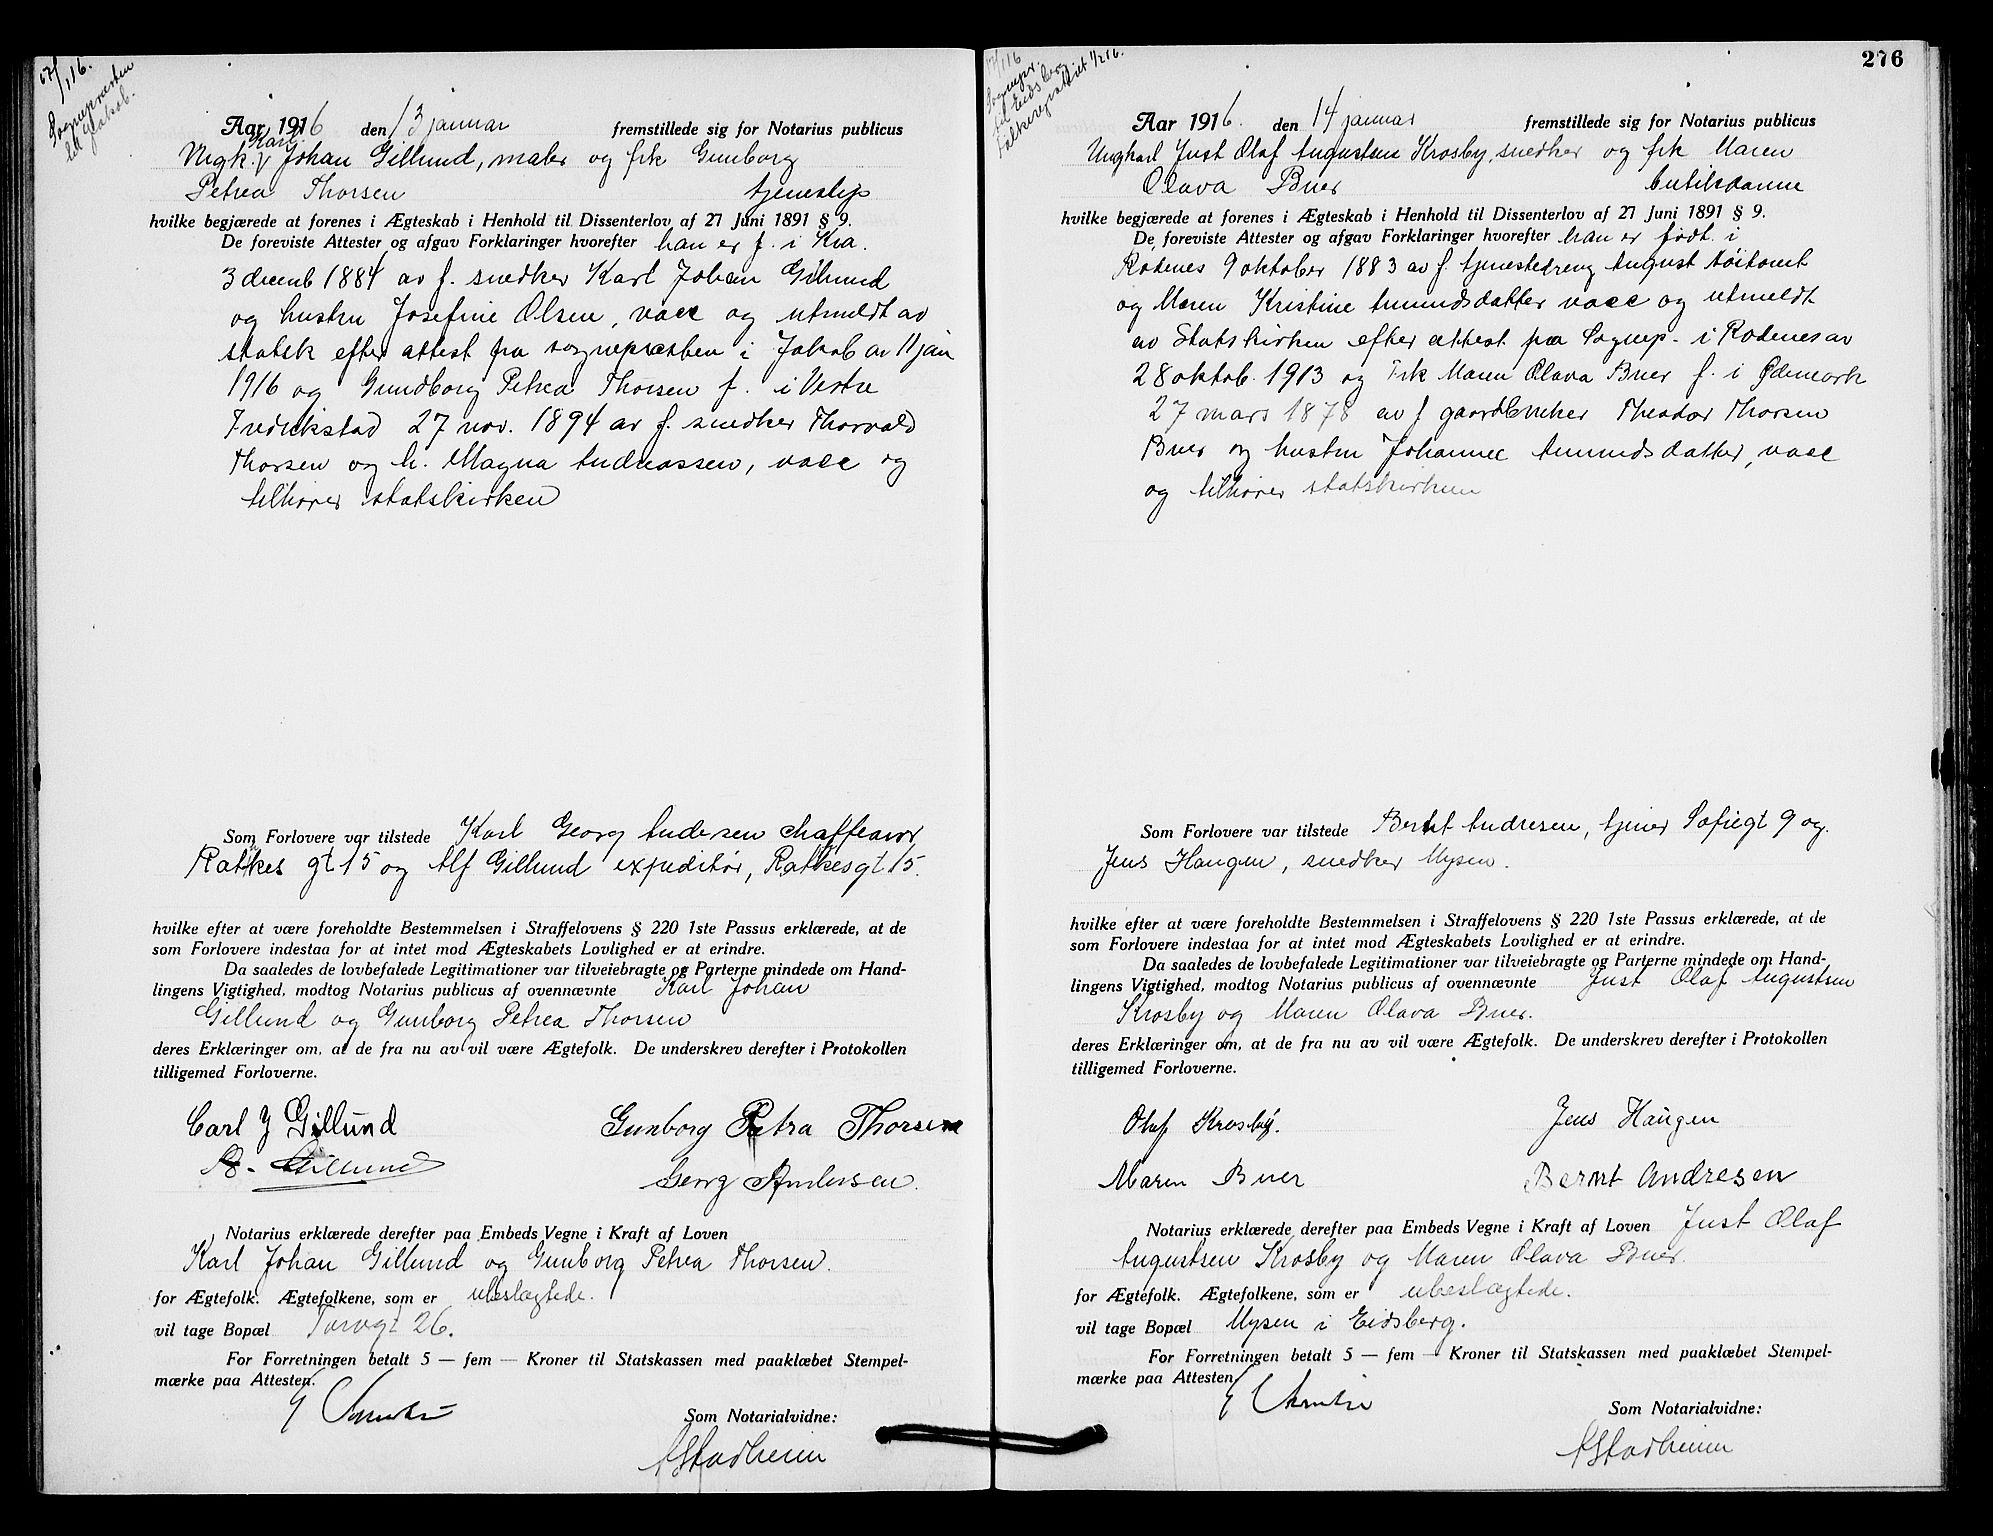 17/1 16.
Sognepresten
til Jakob.
Aar 1916 den 13 januar fremstillede sig for Notarius publicus
Karl
Ungk. Johan Gillund, maler og frk Gunborg
Petrea Thorsen tjenestep
hvilke begjærede at forenes i Ægteskab i Henhold til Dissenterlov af 27 Juni 1891 § 9.
De foreviste Attester og afgav Forklaringer hvorefter han er f. i Kra.
3 decemb 1884 av f. snedker Karl Johan Gillund
og hustru Josefine Olsen, vacc og utmeldt av
statsk efter attest fra sognepresten i Jakob av 11 jan
1916 og Gundborg Petrea Thorsen f. i Vestre
Fredrikstad 27 nov. 1894 av f. snedker Thorvald
Thorsen og h. Magna Andreassen, vacc og
tilhører statskirken
Som Forlovere var tilstede Karl Georg Andersen chaffeaur,
Ratkes gt 15 og Alf Gillund expeditør, Ratkesgt 15.
hvilke efter at være foreholdte Bestemmelsen i Straffelovens § 220 1ste Passus erklærede, at de
som Forlovere indestaa for at intet mod Ægteskabets Lovlighed er at erindre.
Da saaledes de lovbefalede Legitimationer var tilveiebragte og Parterne mindede om Hand-
lingens Vigtighed, modtog Notarius publicus af ovennævnte Karl Johan
Gillund og Gunborg Petrea Thorsen
deres Erklæringer om, at de fra nu av vil være Ægtefolk. De underskrev derefter i Protokollen
tilligemed Forloverne.
Carl J Gillund Gunborg Petra Thorsen
A. Gillund Georg Andersen.
Notarius erklærede derefter paa Embeds Vegne i Kraft af Loven
Karl Johan Gillund og Gunborg Petrea Thorsen.
for Ægtefolk. Ægtefolkene, som er ubeslægtede.
vil tage Bopæl Torvgt 26.
For Forretningen betalt 5 — fem — Kroner til Statskassen med paaklæbet Stempel-
mærke paa Attesten.
Som Notarialvidne:
AStadheim
276
17/1 16
Sognepr.
til Eidsberg
Folkeregistret 1/2 16.
Aar 1916. den 14 januar fremstillede sig for Notarius publicus
Ungkarl Just Olaf Augustsen Krosby, snedker og frk Maren
Olava Buer butiksdame
hvilke begjærede at forenes i Ægteskab i Henhold til Dissenterlov af 27 Juni 1891 § 9.
De foreviste Attester og afgav Forklaringer hvorefter han er født i
Rødenes 9 oktober 1883 av f. tjenestedreng August
og Maren Kristine Amundsdatter vacc og utmeldt
av Statskirken efter attest fra Sognep. i Rødenes av
28 oktob. 1913 og Frk Maren Olava Buer f. i Ødemark
27 mars 1878 av f gaardbruker Theodor Thorsen
Buer og hustru Johanne Amundsdatter, vacc
og tilhører statskirken
Som Forlovere var tilstede Bernt Andresen, tjener Sofiegt 9 og
Jens Haugen, snedker Mysen.
hvilke efter at være foreholdte Bestemmelsen i Straffelovens § 220 1ste Passus erklærede, at de
som Forlovere indestaa for at intet mod Ægteskabets Lovlighed er at erindre.
Da saaledes de lovbefalede Legitimationer var tilveiebragte og Parterne mindede om Hand-
lingens Vigtighed, modtog Notarius publicus af ovennævnte Just Olaf Augustsen
Krosby og Maren Olava Buer.
deres Erklæringer om, at de fra nu av vil være Ægtefolk. De underskrev derefter i Protokollen
tilligemed Forloverne.
Olaf Krosby. Jens Haugen
Maren Buer Bernt Andresen
Notarius erklærede derefter paa Embeds Vegne i Kraft af Loven Just Olaf
Augustsen Krosby og Maren Olava Buer.
for Ægtefolk. Ægtefolkene, som er ubeslægtede.
vil tage Bopæl Mysen i Eidsberg.
For Forretningen betalt 5 — fem — Kroner til Statskassen med paaklæbet Stempel-
mærke paa Attesten
Som Notarialvidne:
AStadheim